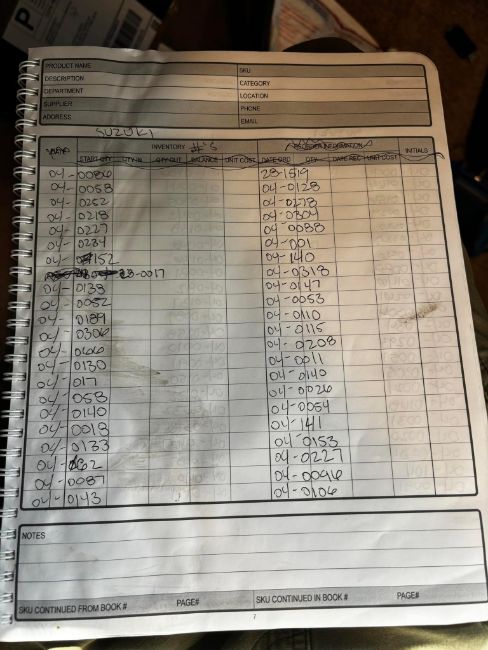 P
PRODUCT NAME SKU
DESCRIPTION CATEGORY
DEPARTMENT LOCATION
SUPPLIER PHONE
ADDRESS EMAIL
SUZUKI
INVENTORY #'S INITIALS
START QTY QTY IN QTY OUT BALANCE UNIT COST DATE ORD QTY DATE REC UNIT COST
04-0086 28-1819
04-0058 04-0128
04-0252 04-0278
04-0218 04-0304
04-0227 04-0088
04-0234 04-001
04-152 04-140
23-0017 04-0318
04-0138 04-0147
04-0052 04-0053
04-0189 04-0110
04-0306 04-0115
04-0166 04-0208
04-0130 04-0011
04-017 04-0140
04-058 04-0026
04-0140 04-0054
04-0018 04-141
04-0133 04-0153
04- 04-0227
04-0087 04-0096
04-0143 04-0106
NOTES
SKU CONTINUED FROM BOOK # PAGE# SKU CONTINUED IN BOOK # PAGE#